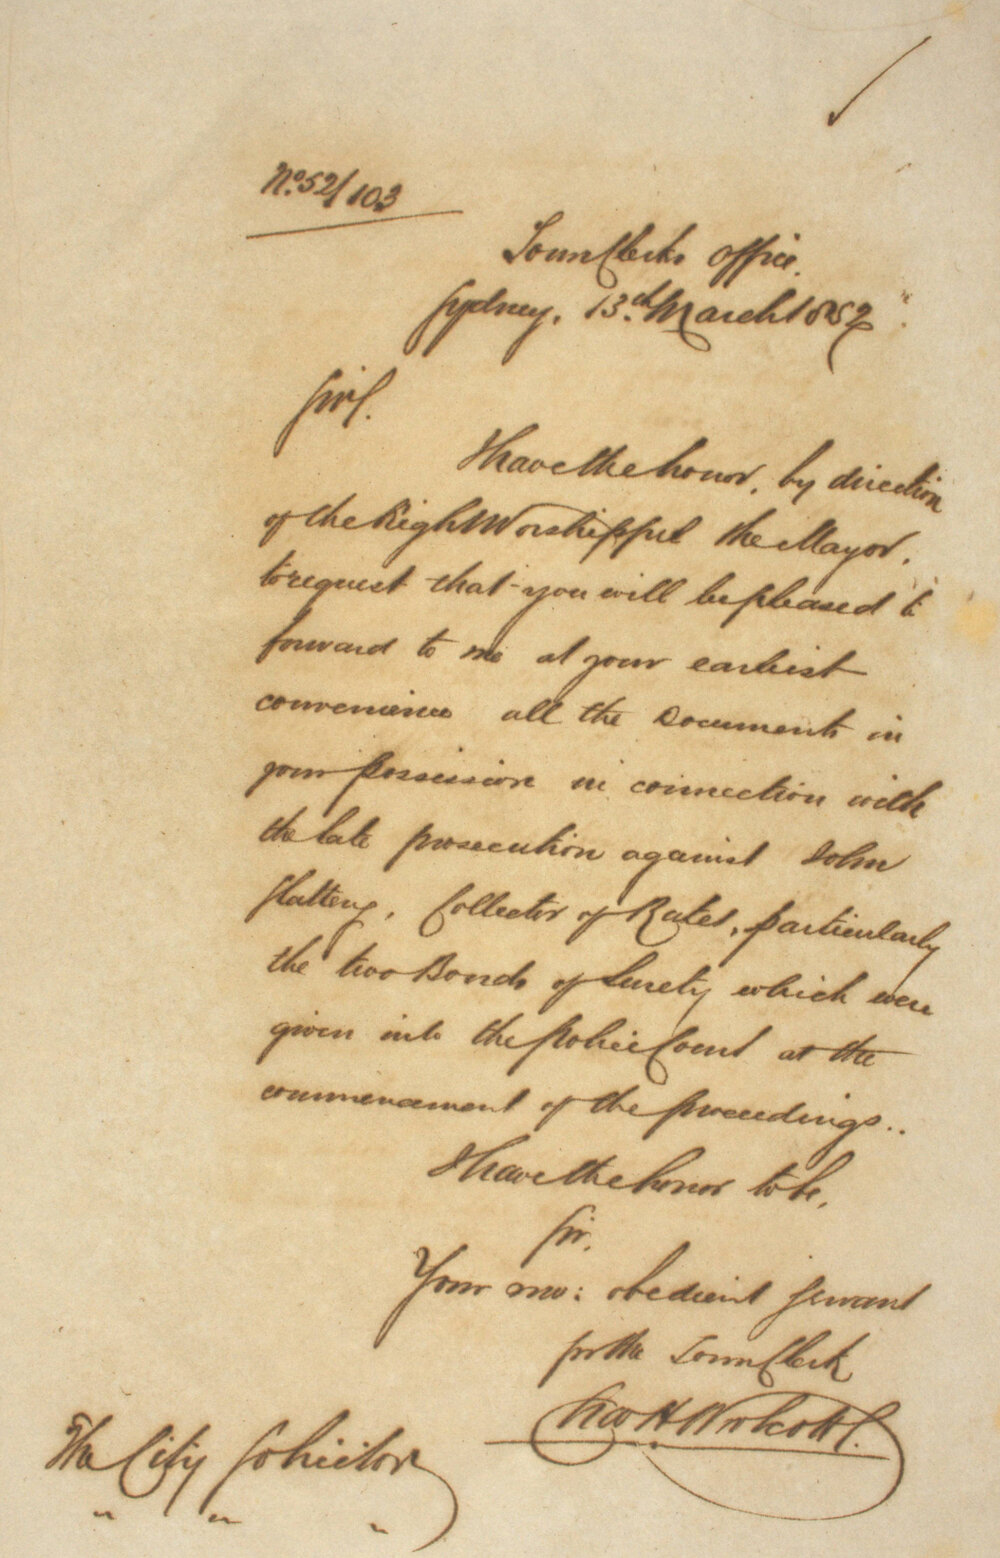 No. 52/103
Town Clerks Office.
Sydney, 13th March 1852
Sir,
I have the honor, by direction
of the Right Worshipful the Mayor,
to request that you will be pleased to
forward to me at your earliest
convenience all the Documents in
your possession in connection with
the late prosecution against John
Slattery, Collector of Rates, particularly
the two Bonds of Surety which were
given into the Police Court at the
commencement of the proceedings..
I have the honor to be,
Sir,
Your mo: obedient servant
for the Town Clerk
H Wolcott
The City Solicitor
" " "